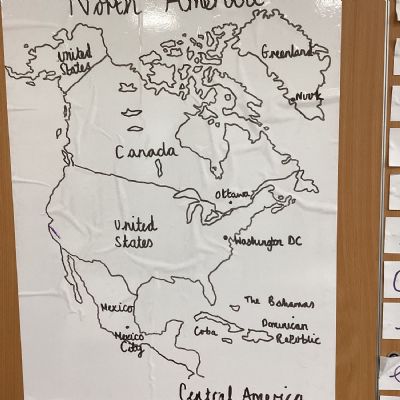 North America
United
States
Greenland
Nuuk
Canada
Ottawa
United
States
Washington DC
Mexico
The Bahamas
Cuba
Dominican
Republic
Mexico
City
Central America